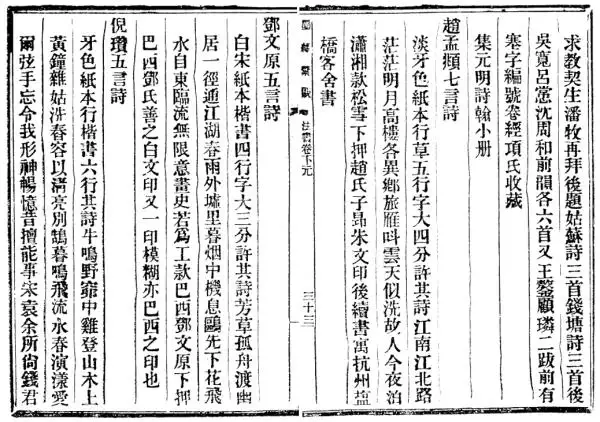 求教契生潘牧再拜後題姑蘇詩三首錢塘詩三首後
吳寬呂㦂沈周和前韻各六首又王鏊顧璘二跋前有
塞字編號卷經項氏收藏
集元明詩翰小册
趙孟頫七言詩
淡牙色紙本行草五行字大四分許其詩江南江北路
茫茫明月高樓各異鄉旅雁呌雲天似洗故人今夜泊
瀟湘款松雪下押趙氏子昂朱文印後續書寓抗州鹽
橋客舍書
墨緣彙觀 法書卷下元 三十三
鄧文原五言詩
白宋紙本楷書四行字大三分許其詩芳草孤舟渡幽
居一徑通江湖春雨外墟里暮烟中機息鷗先下花飛
水自東臨流無限意畫史若爲工款巴西鄧文原下押
巴西鄧氏善之白文印又一印模糊亦巴西之印也
倪瓚五言詩
牙色紙本行楷書六行其詩牛鳴野窌中雞登山木上
黃鐘雜姑洗舂容以淸亮別鵠暮鳴飛流水春演漾愛
爾弦手忘令我形神暢憶昔擅能事宋袁余所尙錢君